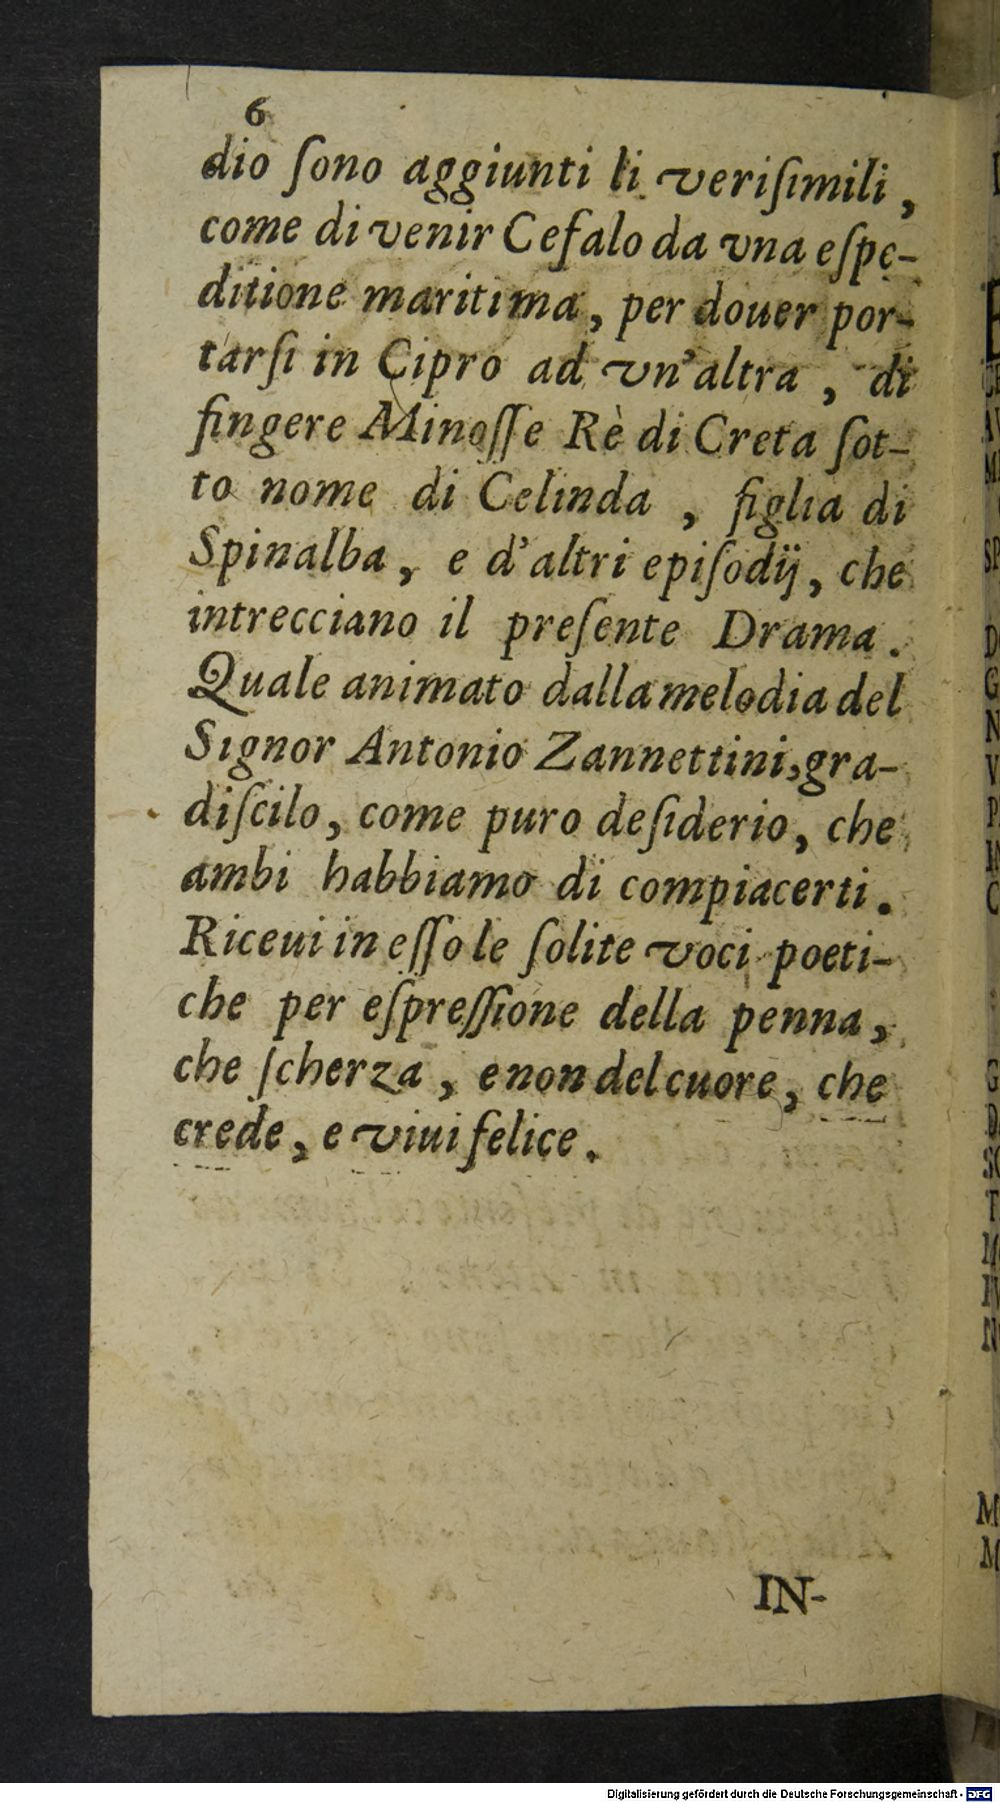 6
dio ſono aggiunti li veriſimili,
come di venir Cefalo da vna eſpe-
ditione maritima, per douer por-
tarſi in Cipro ad vn'altra, di
fingere Minoſſe Rè di Creta ſot-
to nome di Celinda, figlia di
Spinalba, e d'altri epiſodij, che
intrecciano il preſente Drama.
Quale animato dalla melodia del
Signor Antonio Zannettini, gra-
diſcilo, come puro deſiderio, che
ambi habbiamo di compiacerti.
Riceui in eſſo le ſolite voci poeti-
che per eſpreſſione della penna,
che ſcherza, e non del cuore, che
crede, e viui felice.
IN-
Digitalisierung gefördert durch die Deutsche Forschungsgemeinschaft - DFG